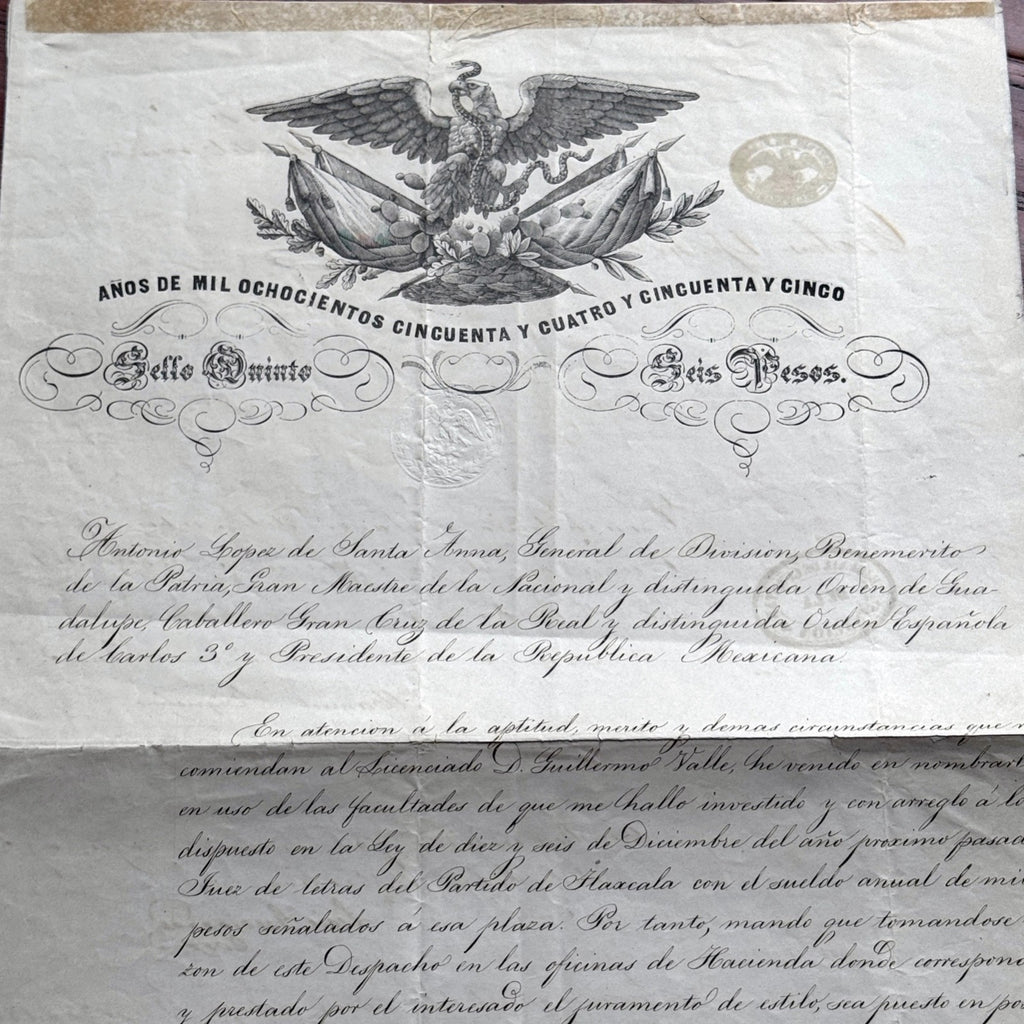 AÑOS DE MIL OCHOCIENTOS CINCUENTA Y CUATRO Y CINCUENTA Y CINCO
Sello Quinto
Seis Pesos.
Antonio Lopez de Santa Anna, General de Division, Benemerito
de la Patria, Gran Maestre de la Nacional y distinguida Orden de Gua-
dalupe, Caballero Gran Cruz de la Real y distinguida Orden Española
de Carlos 3º y Presidente de la Republica Mexicana.
En atencion á la aptitud, merito y demas circunstancias que
comiendan al Licenciado D. Guillermo Valle, he venido en nombrarl
en uso de las facultades de que me hallo investido y con arreglo á lo
dispuesto en la Ley de diez y seis de Diciembre del año proximo pasad
Juez de letras del Partido de Tlaxcala con el sueldo anual de mi
pesos señalados á esa plaza. Por tanto, mando que tomandose
zon de este Despacho en las oficinas de Hacienda donde correspon
y prestado por el interesado el juramento de estilo, sea puesto en po